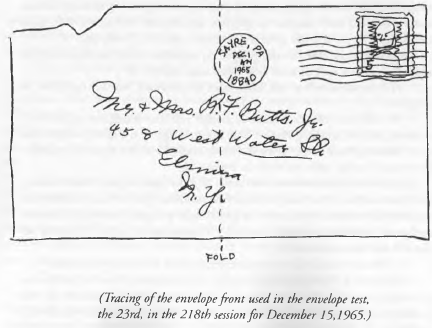 SAYRE, PA
DEC 1
AM
1965
18840
5
Mr. & Mrs. R. F. Butts, Jr.
458 West Water St.
Elmira
N. Y.
FOLD
(Tracing of the envelope front used in the envelope test,
the 23rd, in the 218th session for December 15,1965.)